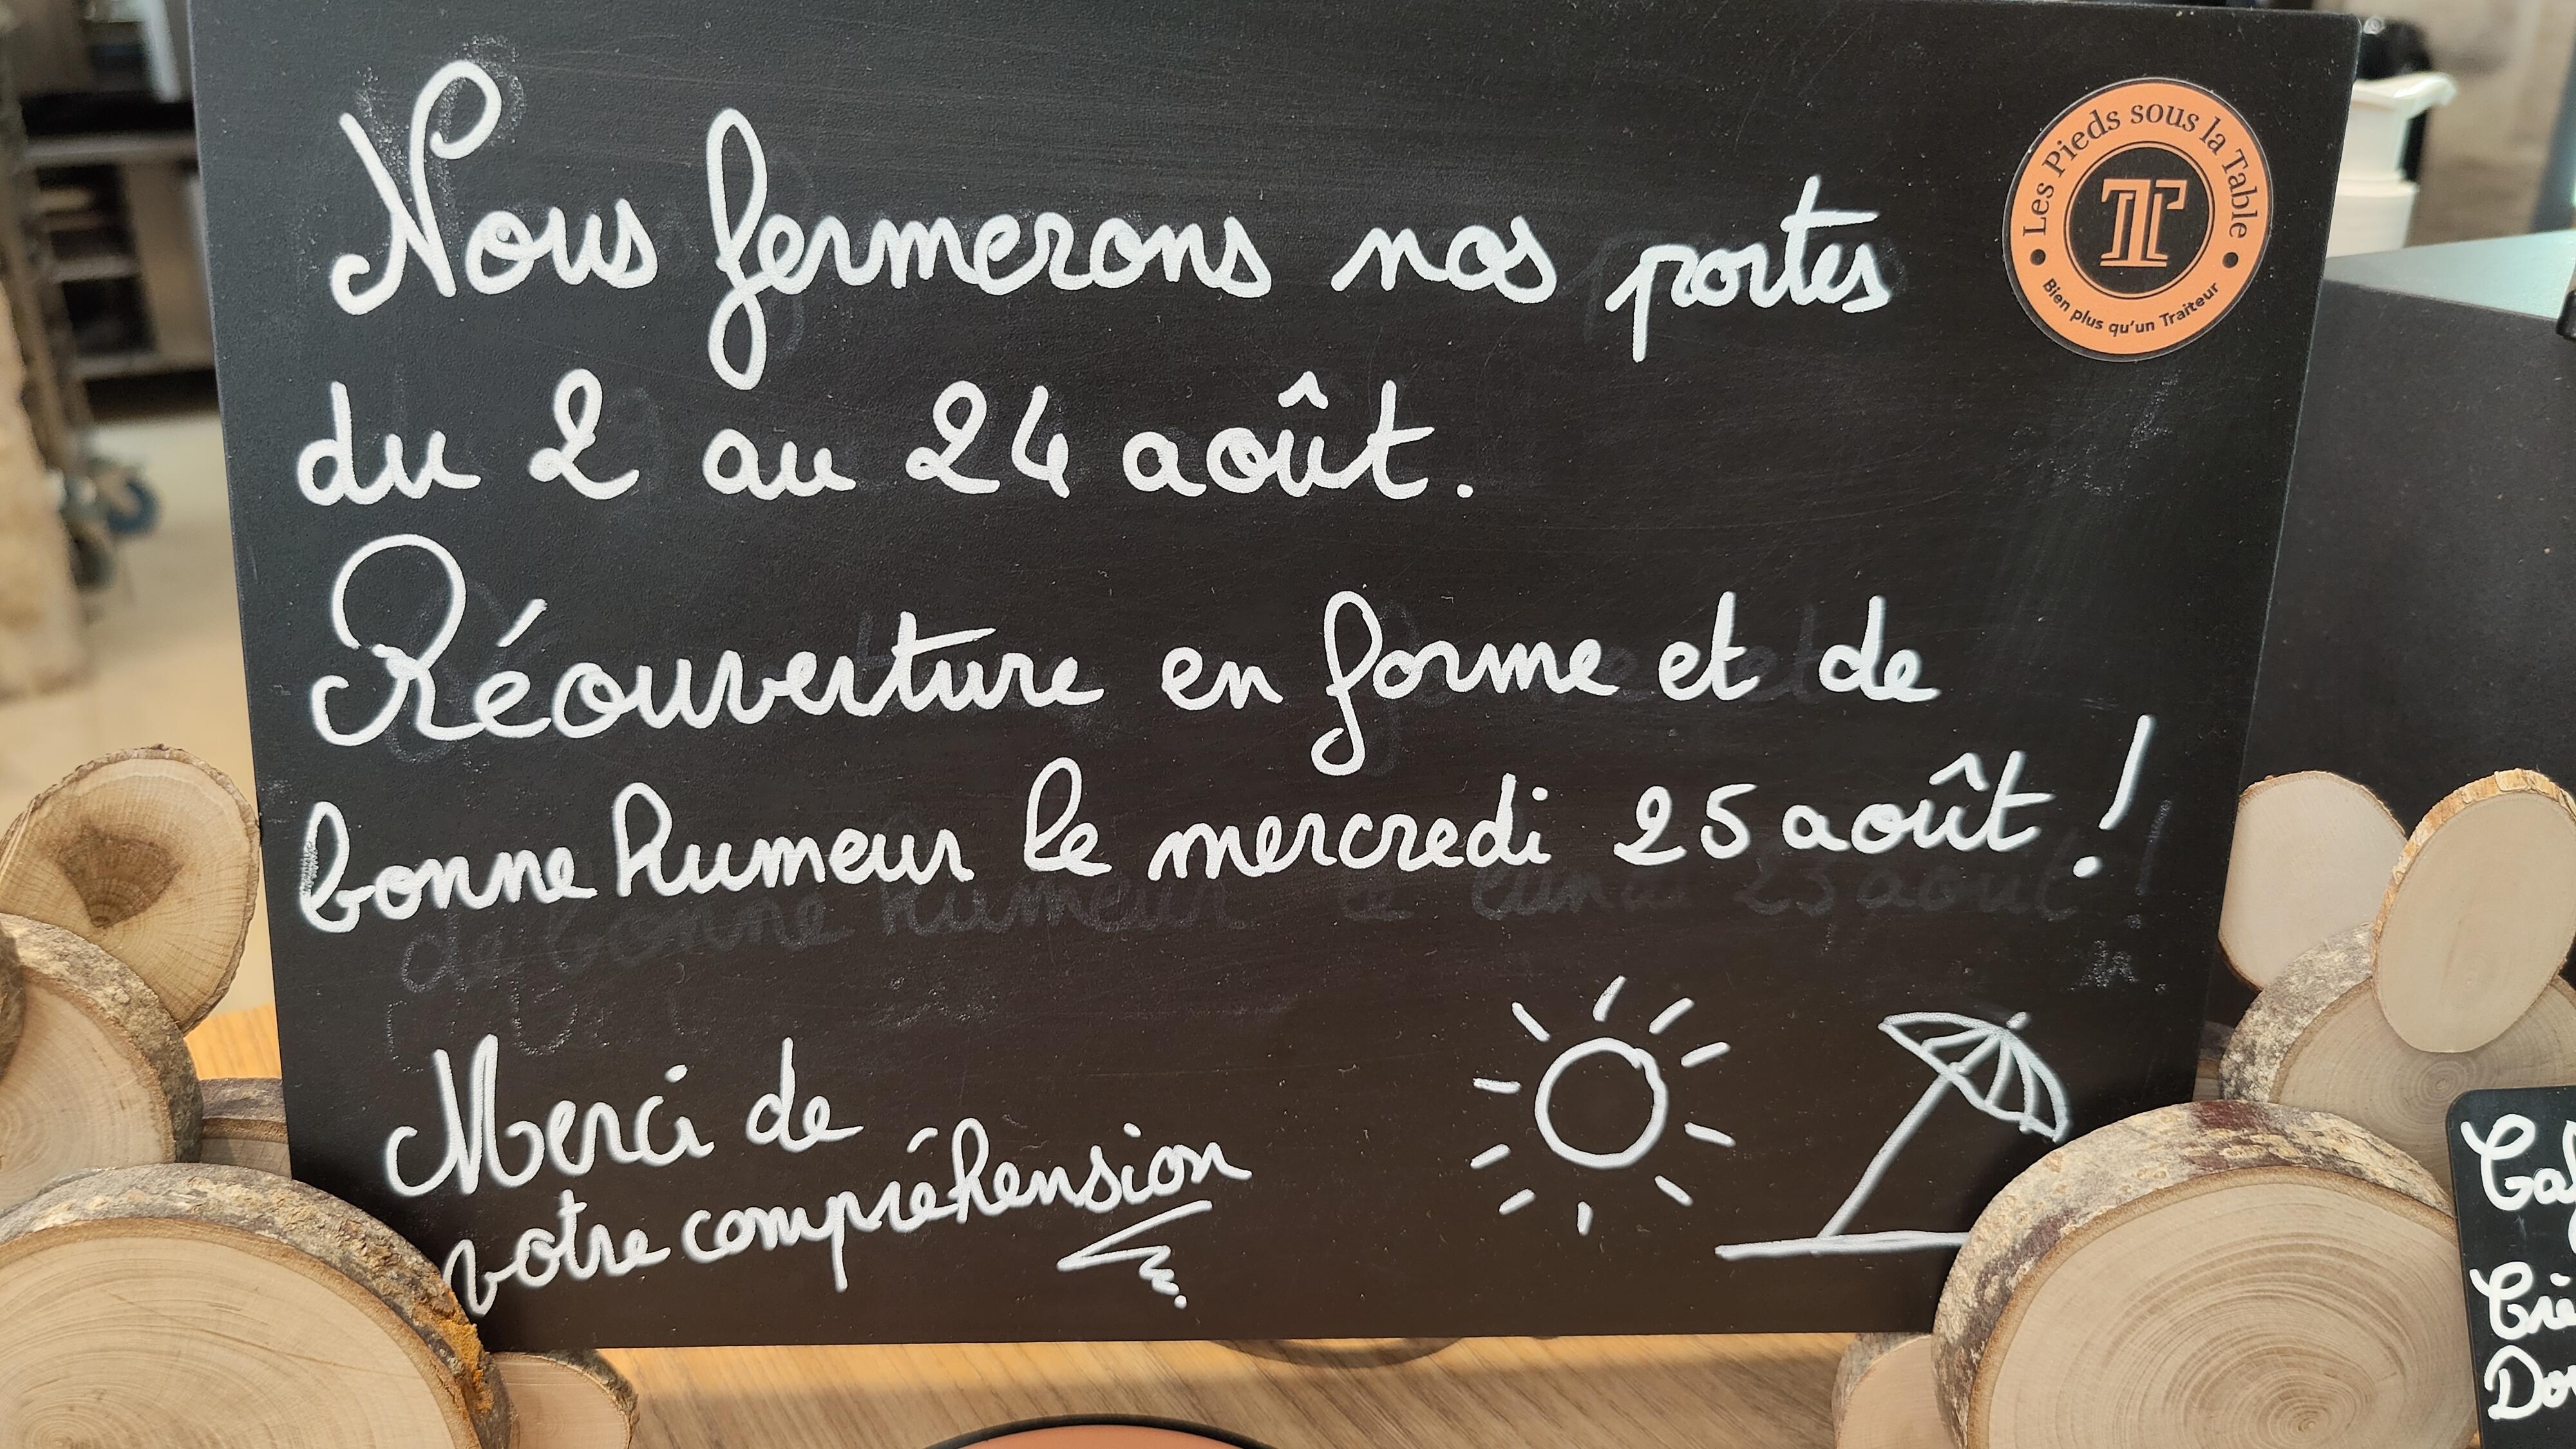 Nous fermerons nos portes
du 2 au 24 août.
Réouverture en forme et de
bonne humeur le mercredi 25 août !
de bonne humeur le lundi 23 août !
Merci de
votre compréhension
Les Pieds sous la Table
TT
Bien plus qu'un Traiteur